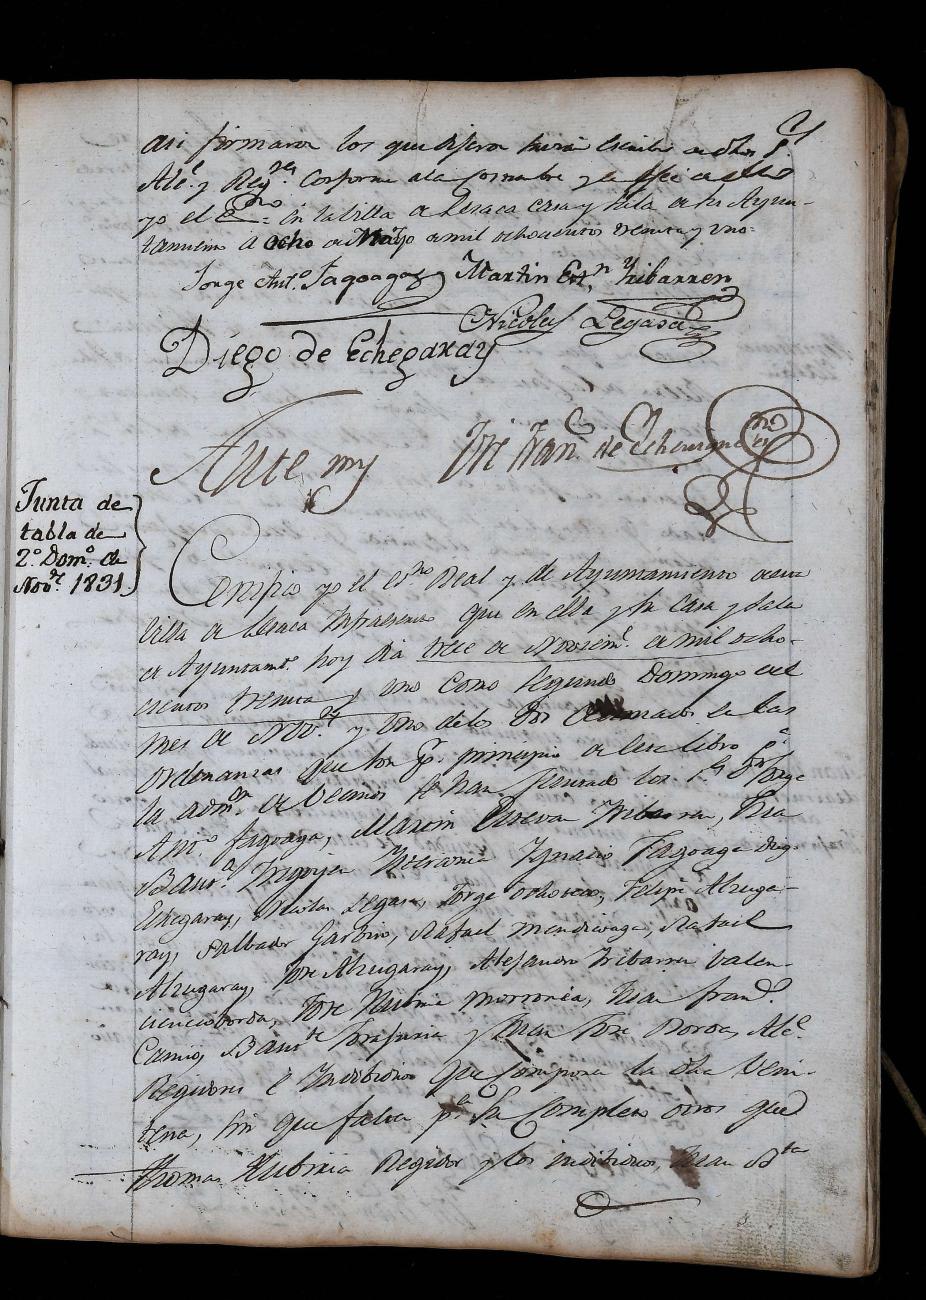 asi firmaron los que dijeron savian Escribir
Alc.e y Reg.res Conforme a la Costumbre y en fee de ello
yo el Ess.no = En la Villa de Lesaca casa y Sala de su Ayun-
tamiento a ocho de Mayo de mil ochocientos treinta y uno =
Jorge Ant.o Fagoagaz Martin Est.n Yribarren
Nicolas Legasa
Diego de Echegaray
Ante my José Fran.co de
Junta de
tabla de
2.o Dom.o de
Nov.re 1831
Certifico yo el Ess.no Real y de Ayuntamiento de esta
Villa de Lesaca Infraescrito que en ella y su Casa y Sala
de Ayuntam.to hoy dia trece de Noviem.e de mil ocho-
cientos treinta y uno como segundo Domingo del
mes de Nov.re y uno de los dos en las
ordenanzas que son p.r principio de este libro p.a
la adm.on de Vecinos se han Juntado los S.res Jorge
Ant.o Fagoaga, Martin Esteban Yribarren, Juan
Baut.a Ygnacio Fagoaga Diego
Echegaray, Nicolas Legasa, Jorge Ochoteco, Felipe Alzuga-
ray, Salbador Garbiso, Rafael Mendiveaga, Rafael
Alzugaray, José Alzugaray, Alejandro Yribarren Valen-
cincioborda, José Hubiria Morronea, Juan Fran.co
Camio, Baut.ta y Juan José Borda, Alc.e
Regidores é Individuos que Componen la dha Vein-
tena, sin que falten p.a su Completo otros que
Thomas Hubiria Regidor y los individuos Juan B.ta